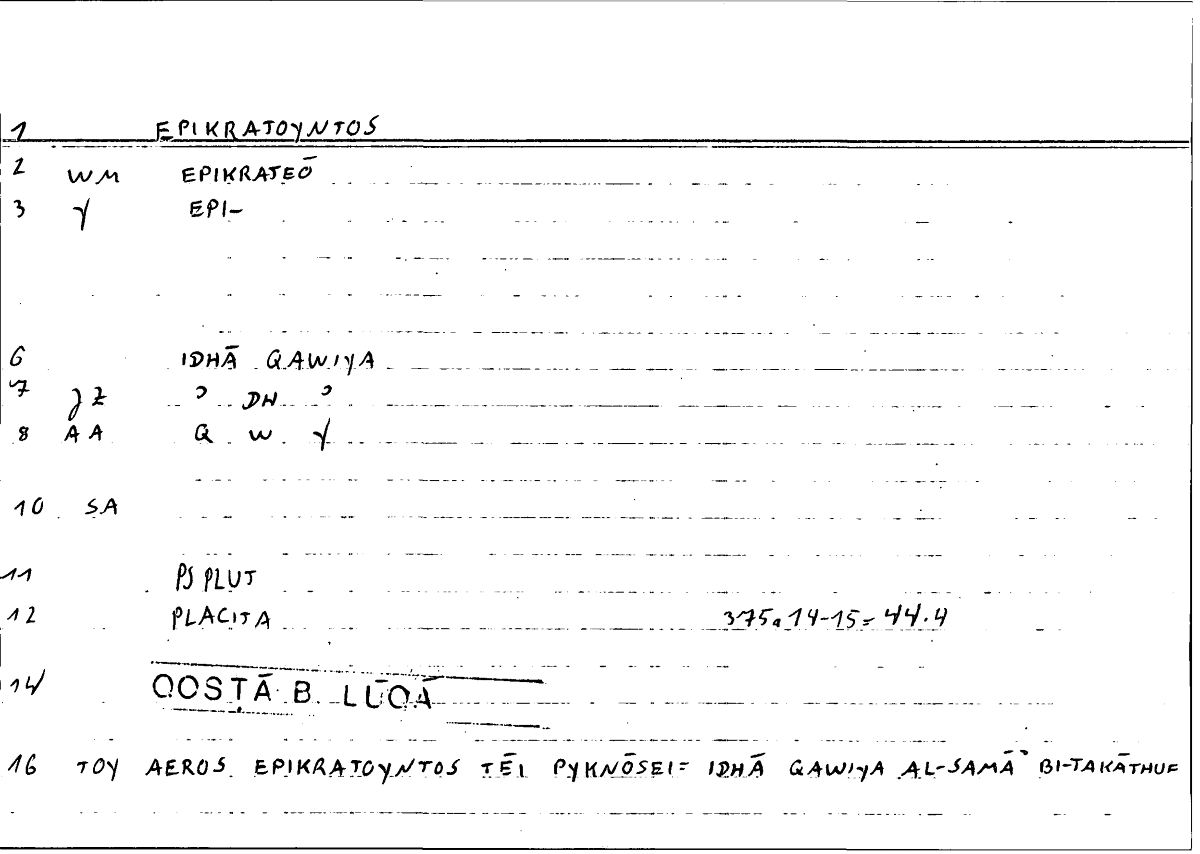 1 EPIKRATOYNTOS
2 WM EPIKRATEŌ
3 Y EPI-
6 IDHĀ QAWIYA
7 JZ ʾ DH ʾ
8 AA Q W Y
10 SA
11 PS PLUT
12 PLACITA 375a14-15=44.4
14 QOSṬĀ B. LŪQĀ
16 TOY AEROS EPIKRATOYNTOS TĒI PYKNŌSEI= IDHĀ QAWIYA AL-SAMĀʾ BI-TAKĀTHUF